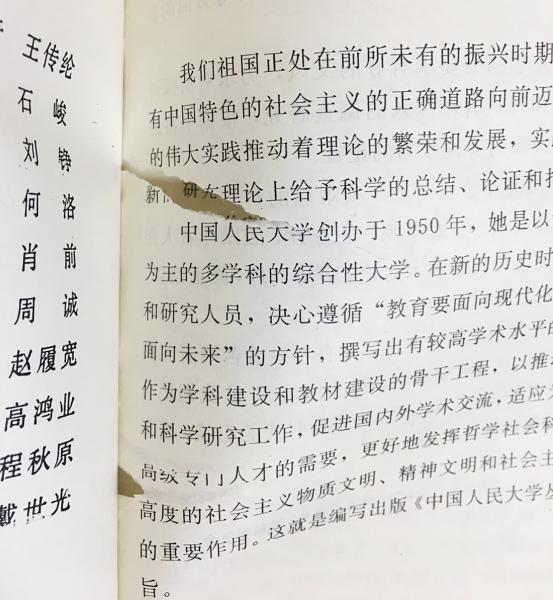 王传纶
石峻
刘铮
何洛
肖前
周诚
赵履宽
高鸿业
程秋原
戴世光
我们祖国正处在前所未有的振兴时期
有中国特色的社会主义的正确道路向前迈
的伟大实践推动着理论的繁荣和发展，实
研究理论上给予科学的总结、论证和
中国人民大学创办于1950年，她是以
为主的多学科的综合性大学。在新的历史时
和研究人员，决心遵循“教育要面向现代化
面向未来”的方针，撰写出有较高学术水平的
作为学科建设和教材建设的骨干工程，以推
和科学研究工作，促进国内外学术交流，适应
高级专门人才的需要，更好地发挥哲学社会科
高度的社会主义物质文明、精神文明和社会主
的重要作用。这就是编写出版《中国人民大学丛
旨。